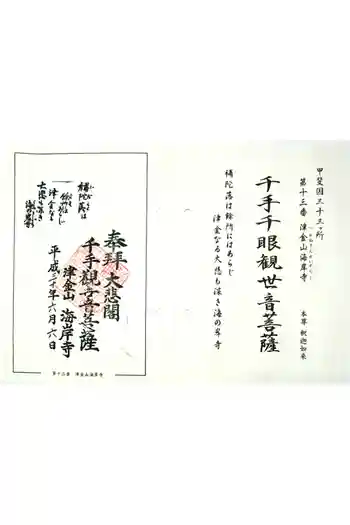 甲斐国三十三ヶ所
第十三番 津金山海岸寺 本尊 釈迦如来
千手千眼観世音菩薩
補陀落は餘所にはあらじ
津金なる大悲も深き海の岸寺
奉拝 大悲閣
千手觀世音菩薩
津金山 海岸寺
平成三十年六月六日
補陀落は
餘所にはあらじ
津金なる
大悲も深き
海の岸寺
第十三番 津金山海岸寺